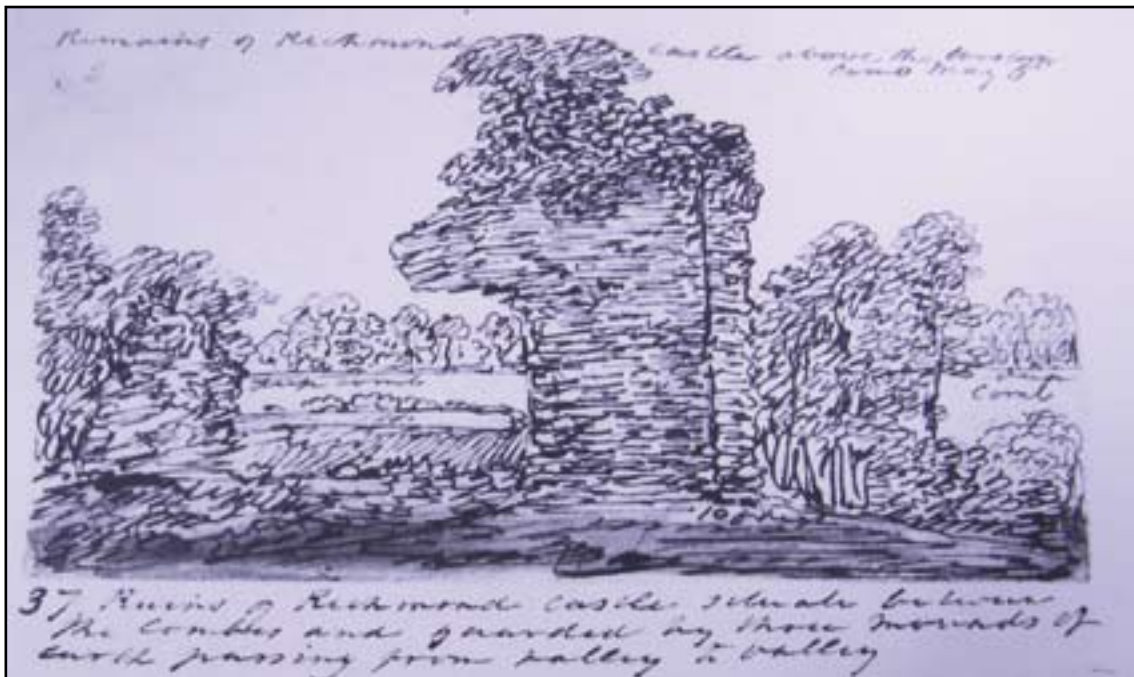 Remains of Richmond Castle above the
Comb May
Deep Comb
Comb
10
37 Ruins of Richmond Castle situate between
the Combes and guarded by three mounds of
earth passing from valley to valley